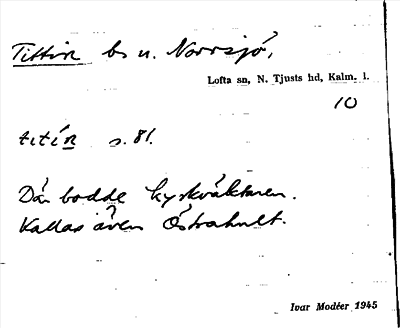 Tittin bs u. Norrsjö,
Lofta sn, N. Tjusts hd, Kalm. l.
10
titín s. 81.
Där bodde kyrkväktaren.
Kallas även Östrahult.
Ivar Modéer 1945